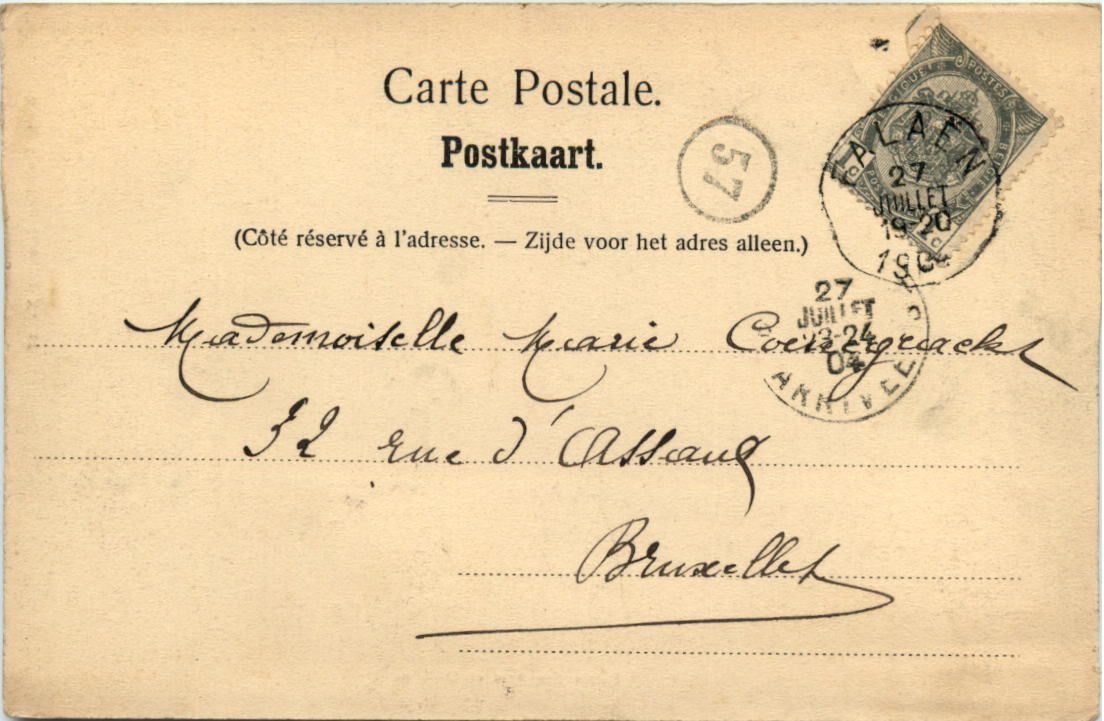 Carte Postale.
Postkaart.
57
(Côté réservé à l'adresse. — Zijde voor het adres alleen.)
POSTES
FALAËN
27
JUILLET
19-20
1904
27
JUILLET
23-24
04
ARRIVÉE
Mademoiselle Marie
32 rue d'Assaut
Bruxelles